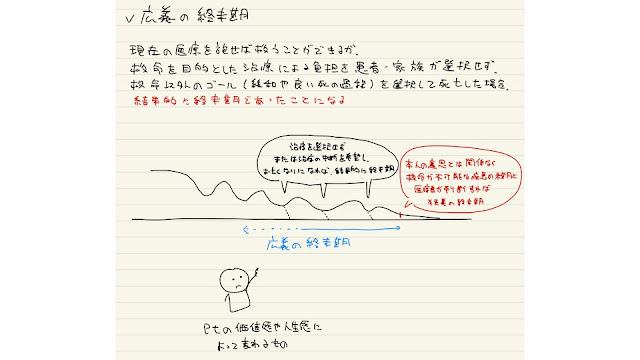 ✓ 広義の終末期
現在の医療を施せば救うことができるが、
救命を目的とした治療による負担を患者・家族が選択せず、
救命以外のゴール（緩和や良い死の過程）を選択して死亡した場合、
結果的に終末期であったことになる
治療を選択せず
または治療の中断を希望し、
お亡くなりになれば、結果的に終末期
本人の意思とは関係なく
救命が不可能な疾患の終円に
医療者が判断すれば
狭義の終末期
広義の終末期
Ptの価値感や人生感に
よって変わるもの